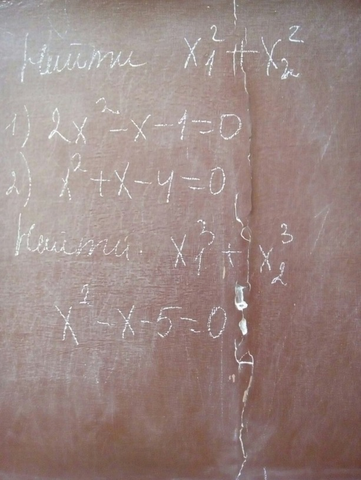 Найти x₁² + x₂²
1) 2x² - x - 1 = 0
2) x² + x - 4 = 0
Найти. x₁³ + x₂³
x² - x - 5 = 0